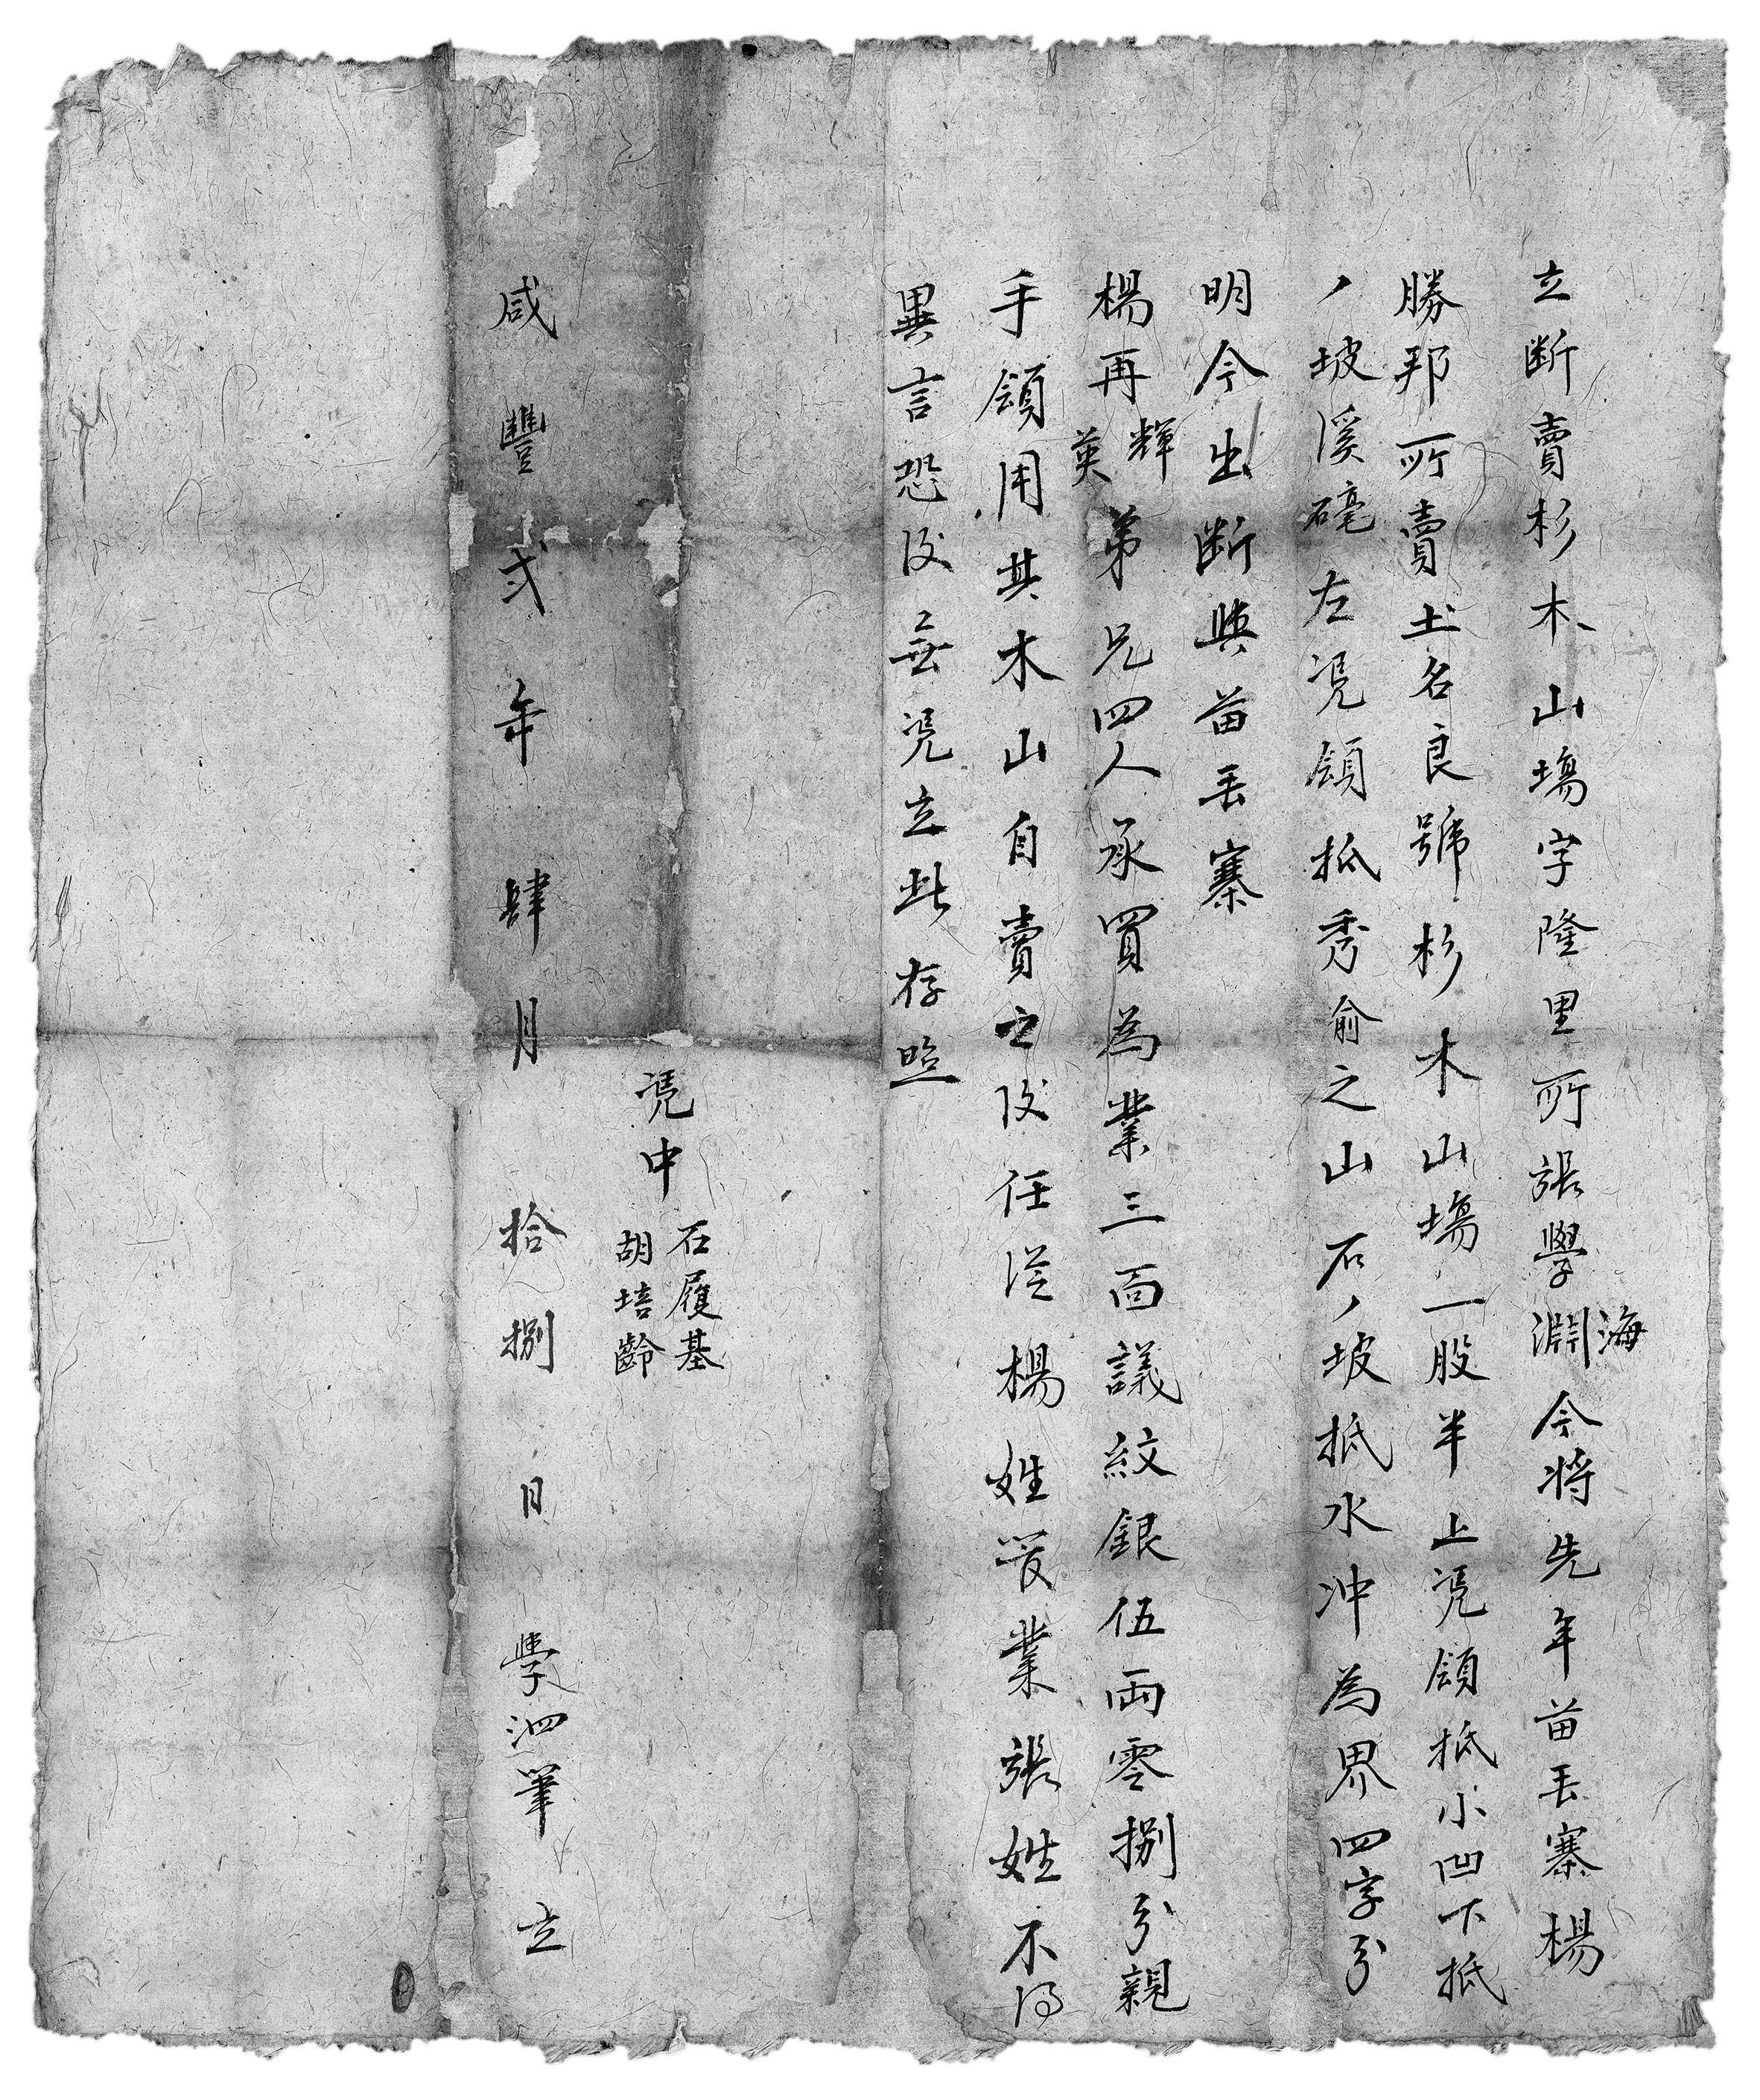 立断賣杉木山塲字隆里所張學淵海今将先年苗丢寨楊
勝邦所賣土名良號杉木山塲一股半上凴領抵小凹下抵
坡溪左凴領抵秀俞之山石坡抵水冲為界四字分
明今出断與苗丢寨
楊再輝英弟兄四人承買為業三面議紋銀伍両零捌分親
手領用其木山自賣之後任從楊姓管業張姓不得
異言恐後無凴立此存照
凴中
石履基
胡培齡
咸豐弍年肆月拾捌日學泗筆立